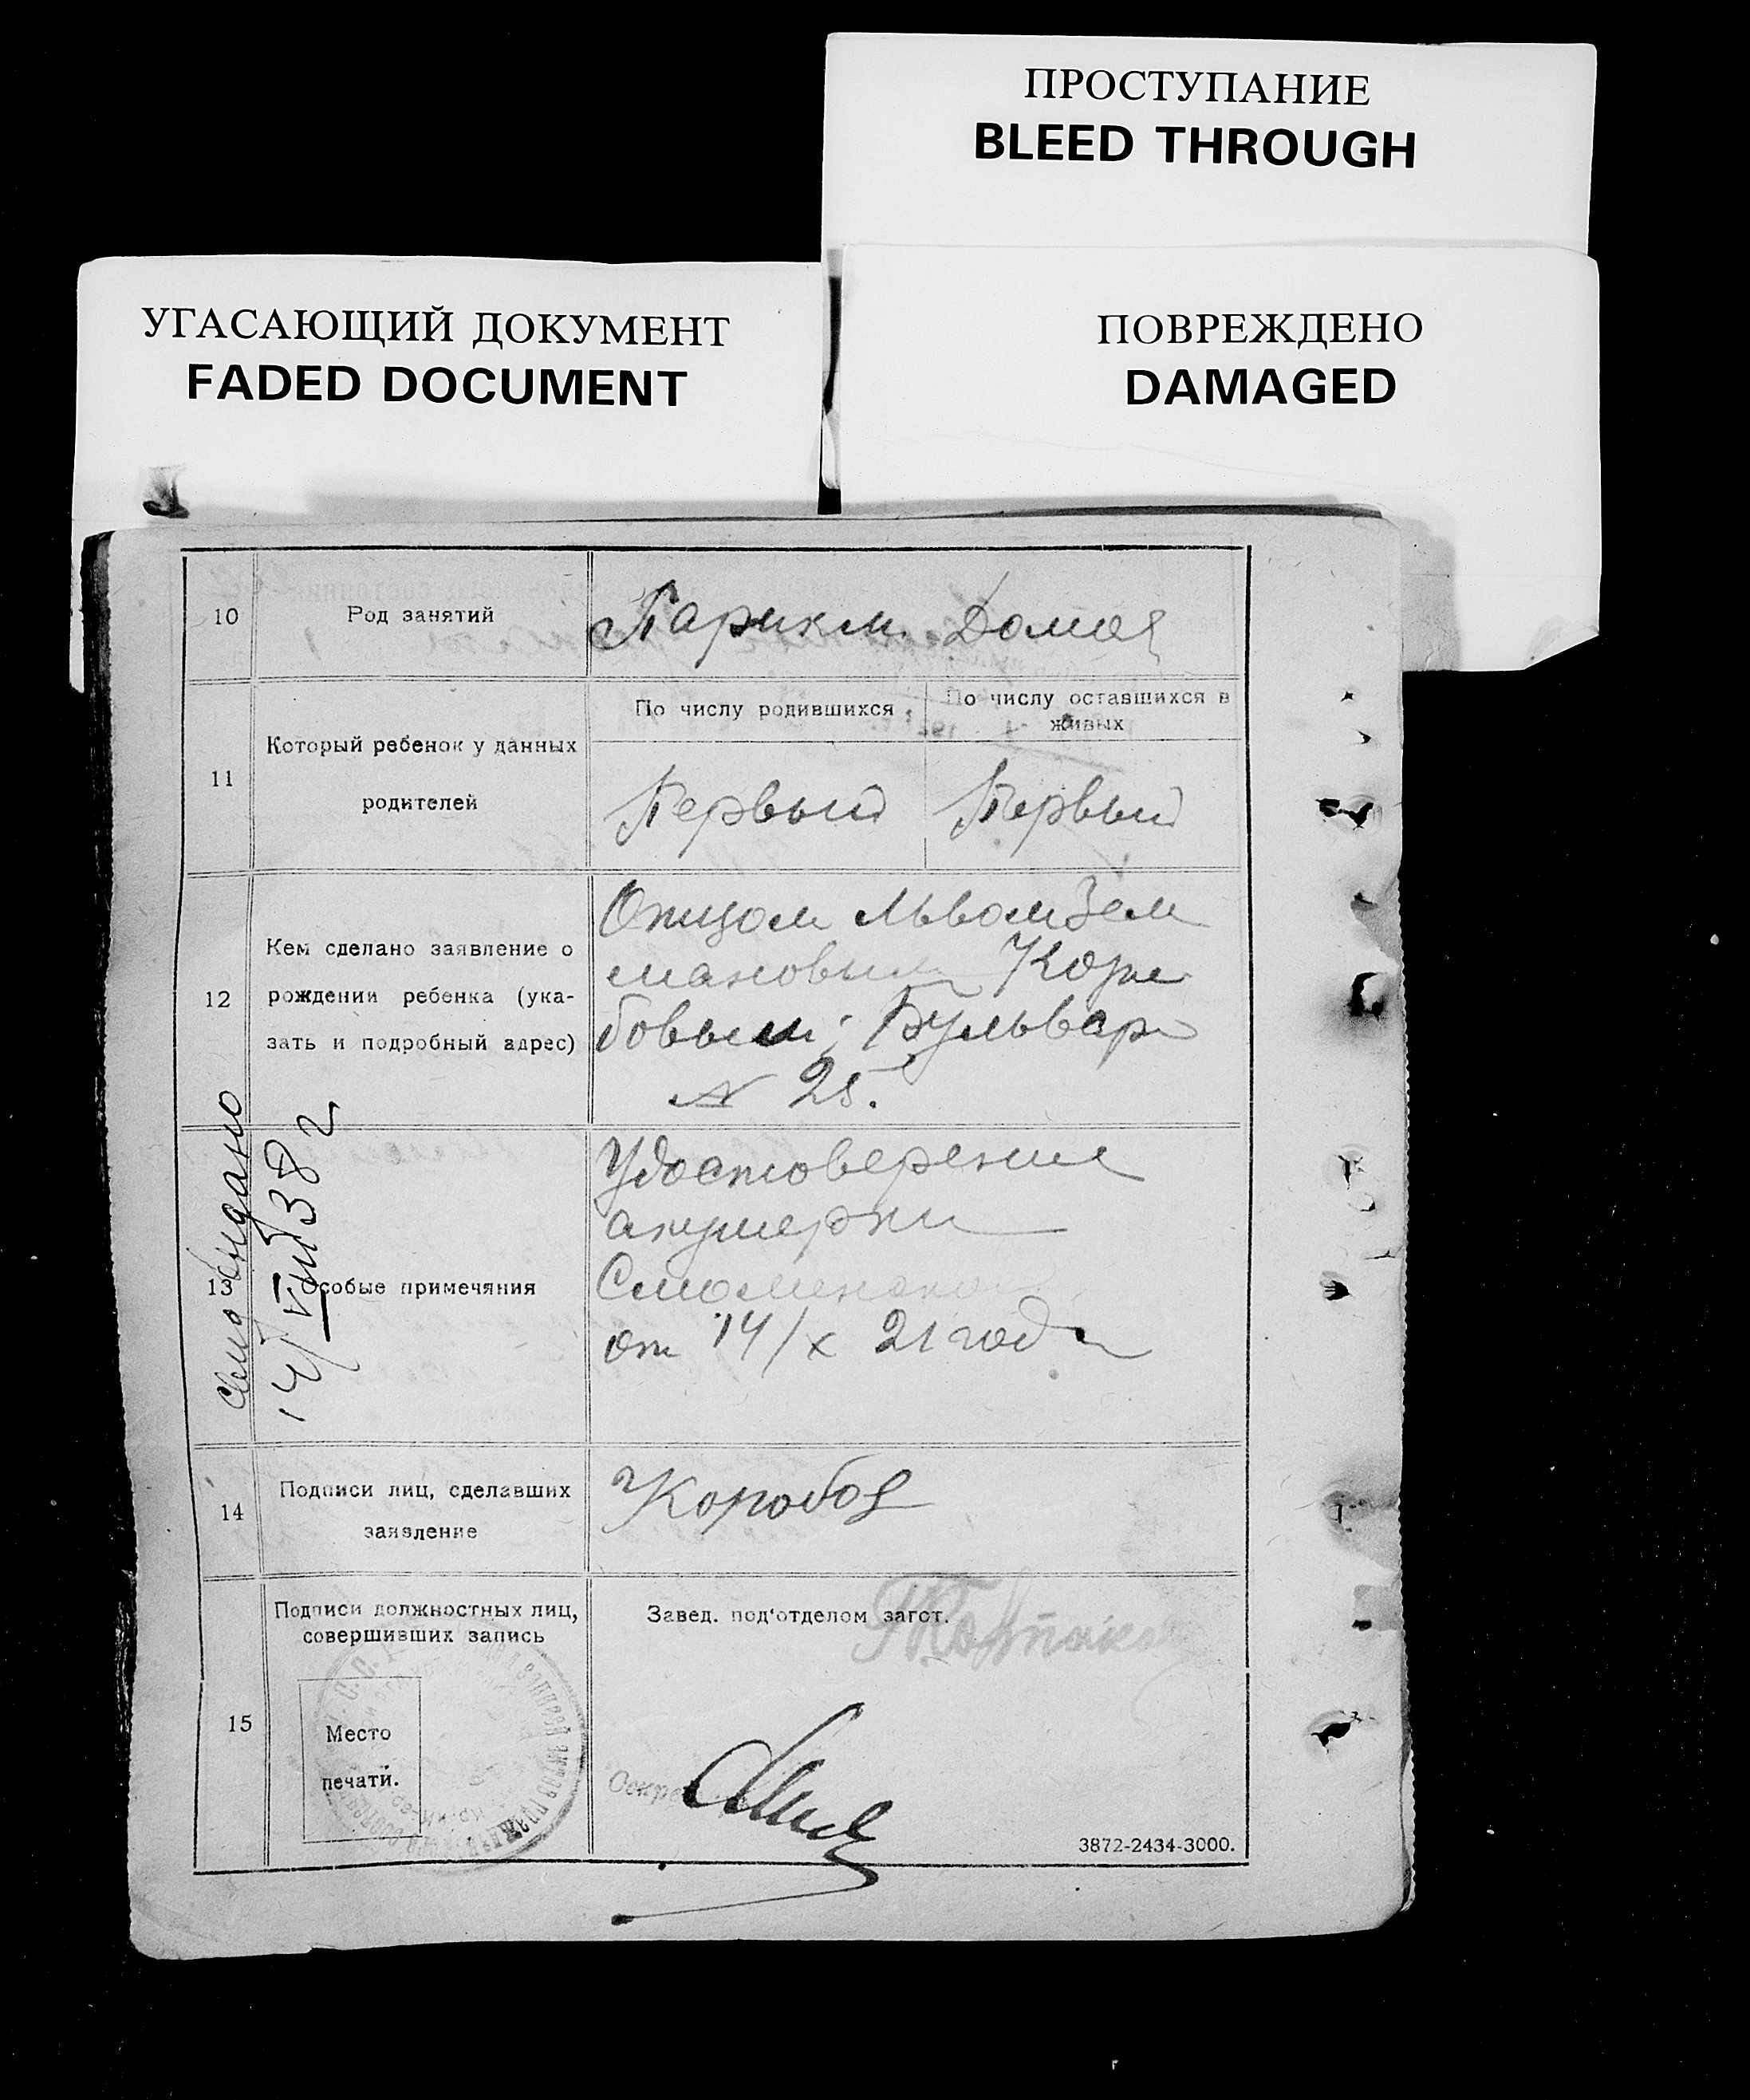 ПРОСТУПАНИЕ
BLEED THROUGH
УГАСАЮЩИЙ ДОКУМЕНТ
FADED DOCUMENT
ПОВРЕЖДЕНО
DAMAGED
10
Род занятий
Парикм. Домоя
11
Который ребенок у данных
родителей
По числу родившихся
По числу оставшихся в
живых
Первый
Первый
12
Кем сделано заявление о
рождении ребенка (ука-
зать и подробный адрес)
Отцом Львом Зел
мановым
бовым; Бульвар
№ 25.
13
Особые примечяния
Удостоверение
акушерки
от 14/X 21 года
выдано
14/VIII 38 г
14
Подписи лиц, сделавших
заявление
Коробов
15
Подписи должностных лиц,
совершивших запись
Место
печати.
Завед. под'отделом загст.
3872-2434-3000.